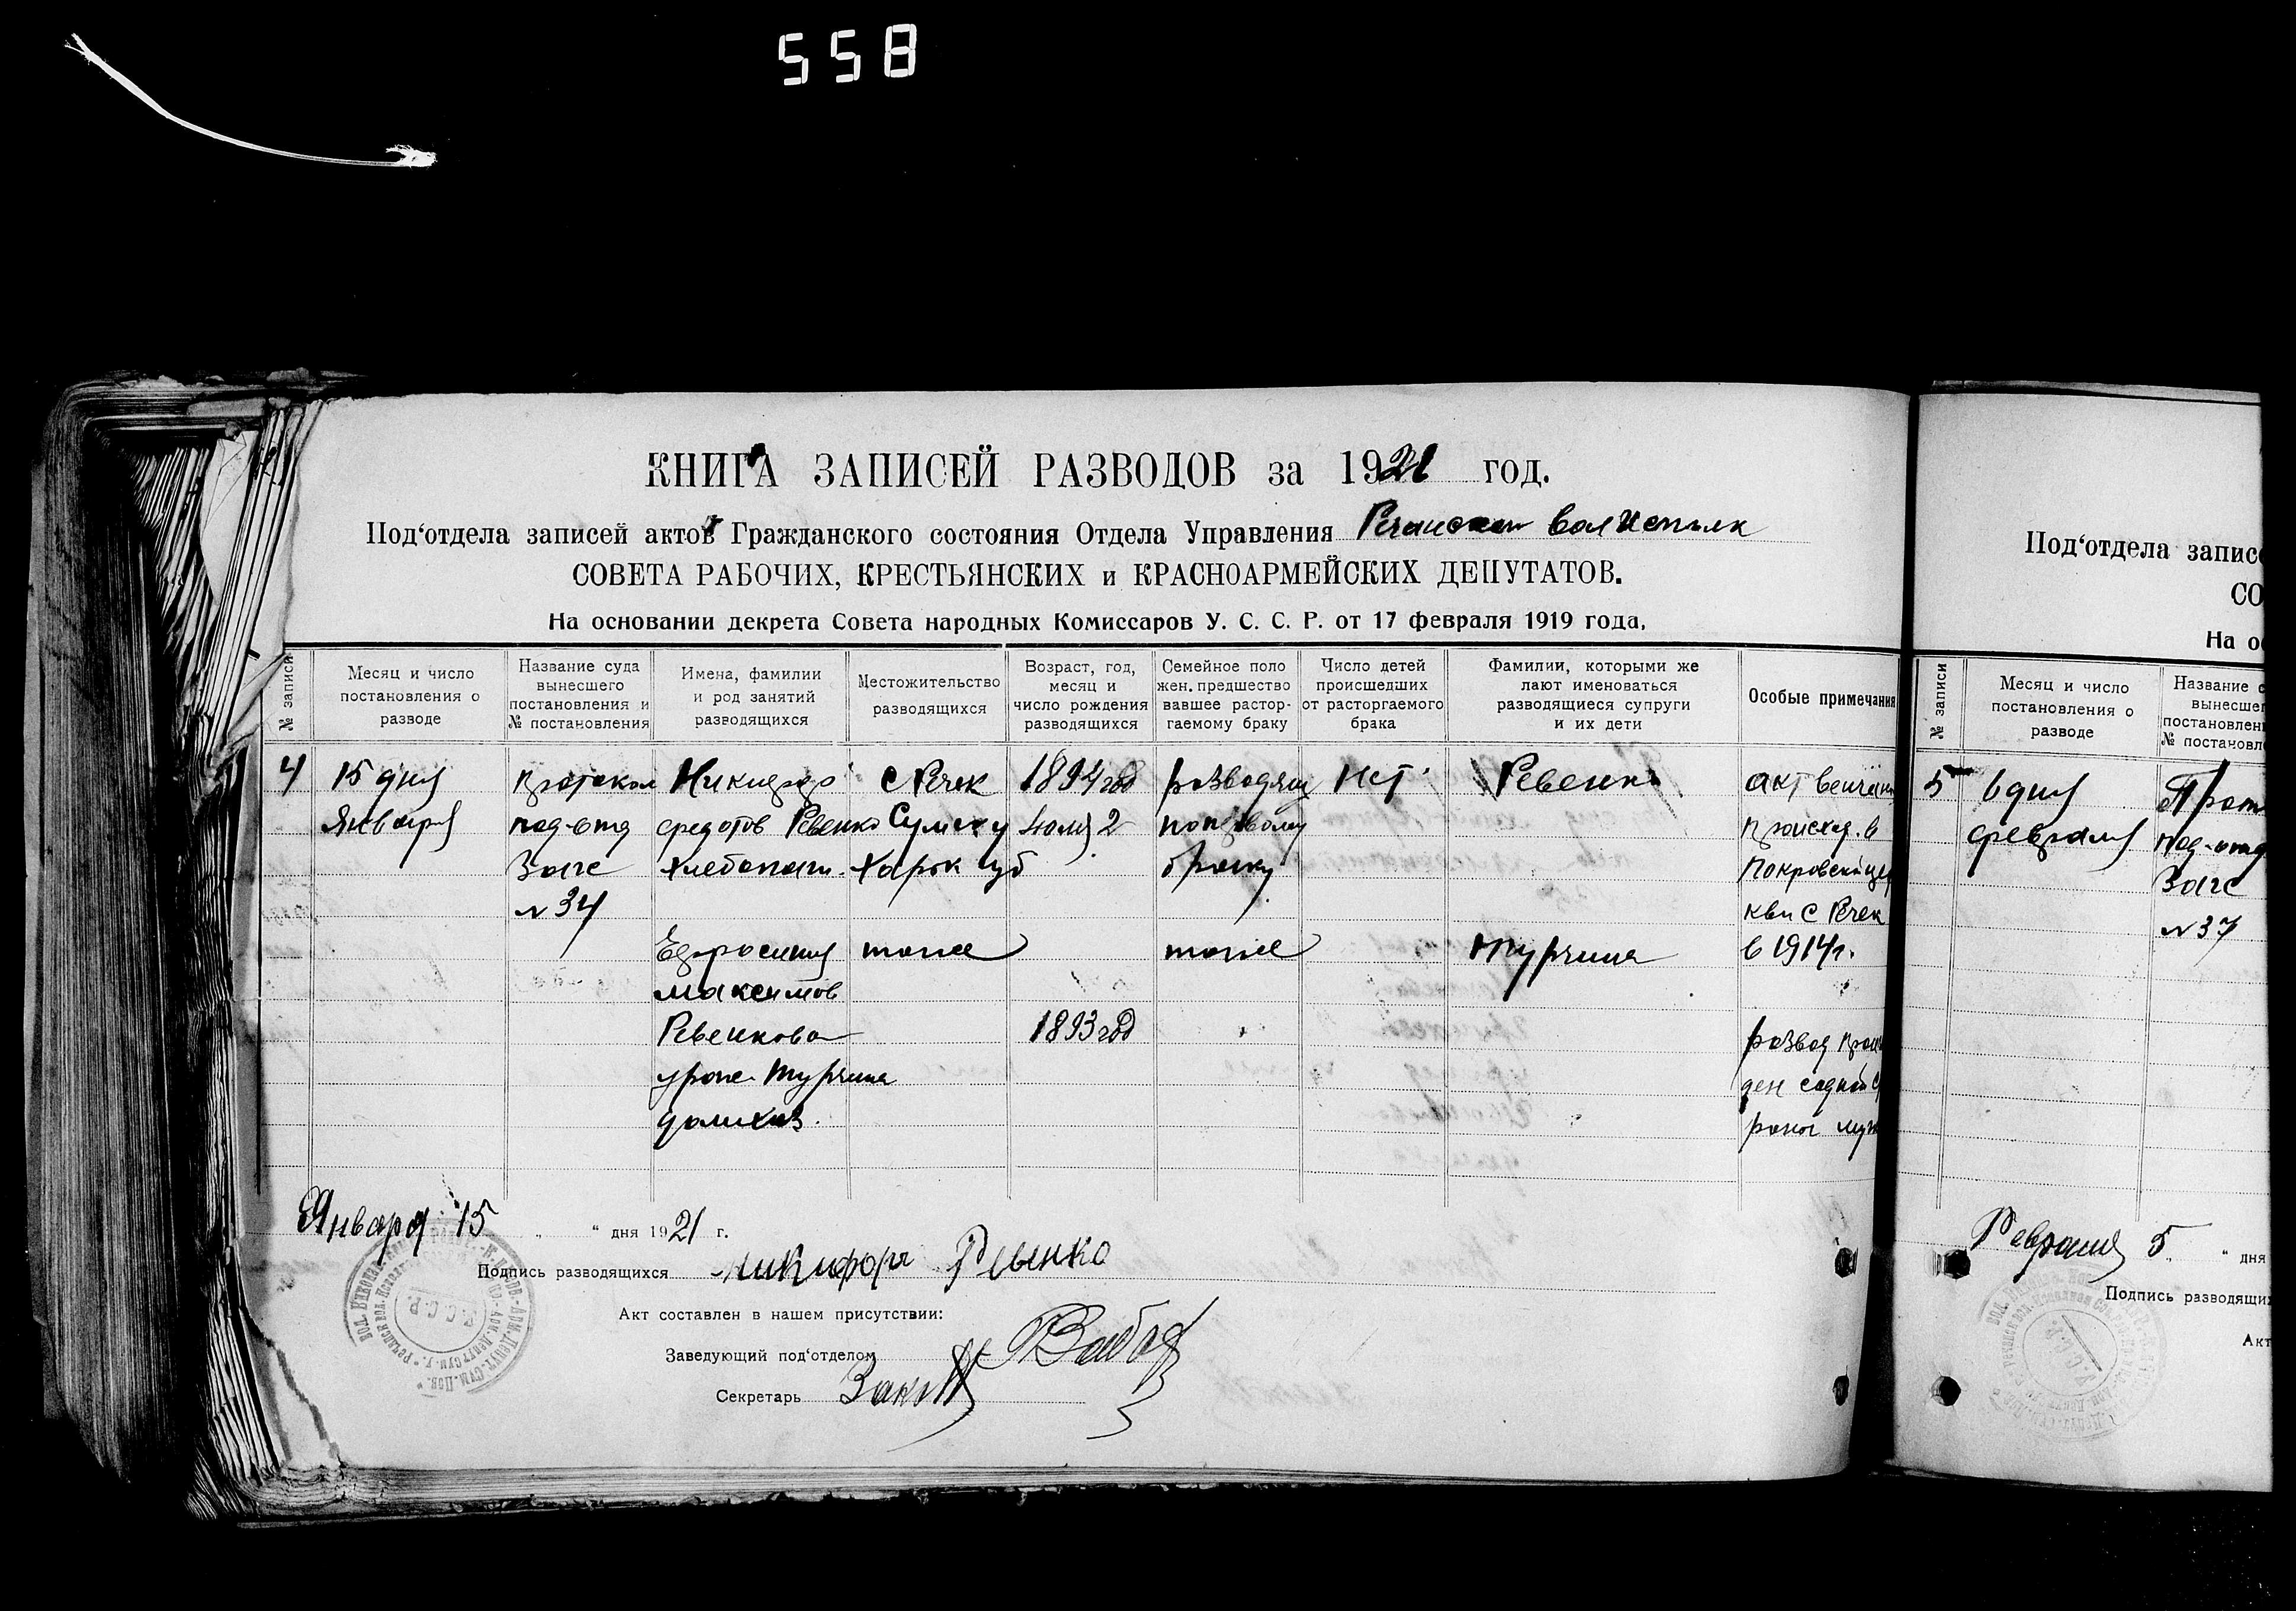 558
КНИГА ЗАПИСЕЙ РАЗВОДОВ за 1921 год.
Под‘отдела записей актов Гражданского состояния Отдела Управления
СОВЕТА РАБОЧИХ, КРЕСТЬЯНСКИХ и КРАСНОАРМЕЙСКИХ ДЕПУТАТОВ.
На основании декрета Совета народных Комиссаров У. С. С. Р. от 17 февраля 1919 года,
№ записи
Месяц и число
постановления о
разводе
Название суда
вынесшего
постановления и
№ постановления
Имена, фамилии
и род занятий
разводящихся
Местожительство
разводящихся
Возраст, год,
месяц и
число рождения
разводящихся
Семейное поло
жен. предшество
вавшее растор-
гаемому браку
Число детей
происшедших
от расторгаемого
брака
Фамилии, которыми же
лают именоваться
разводящиеся супруги
и их дети
Особые примечания
4
15 дня
Января
протокол
под-отд
Загс
№ 34
Никифор
Федотов Ревенко
хлебопаш.
Ефросиния
Максимов
Ревенкова
урож. Турчина
домхоз.
с Речек
Сумск у
Харьк губ
тоже
1894 год
Июля 2
1893 год
разводящ
по первому
браку
тоже
Нет
Ревенко
Турчина
акт венчан
происход. в
Покровской цер
кви с Речек
в 1914 г.
развод
ден с одной с
роны муж
Января 15 " дня 1921 г.
Подпись разводящихся Никифоръ Ревенко
Акт составлен в нашем присутствии:
Заведующий под‘отделом
Секретарь
Под‘отдела записе
СО
На ос
№ записи
Месяц и число
постановления о
разводе
Название с
вынесшег
постановлени
№ постановл
5
6 дня
февраля
Прот
под-отд
Загс
№ 37
Февраля 5 " дня
Подпись разводящи
Акт